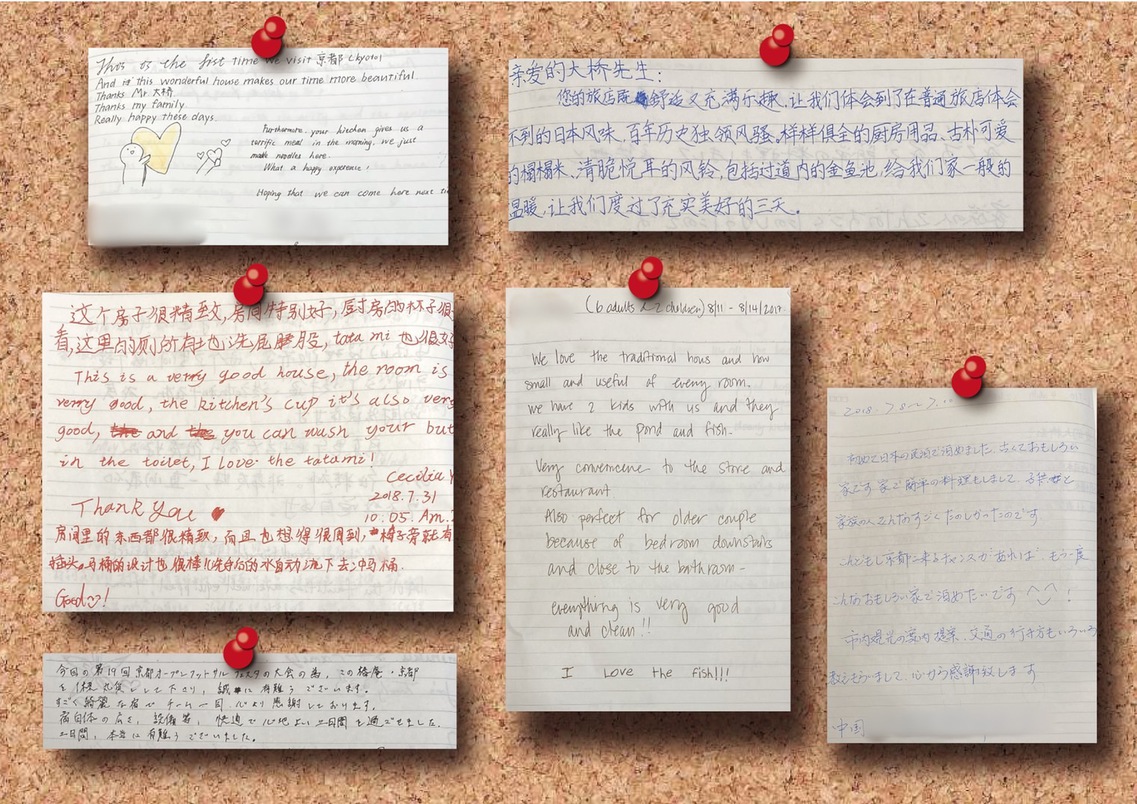 This is the first time we visit 京都 (kyoto)
And is this wonderful house makes our time more beautiful
Thanks Mr. 大桥
Thanks my family
Really happy these days.
Furthermore, your kitchen gives us a
terrific meal in the morning. we just
make noodles here.
What a happy experience!
Hoping that we can come here next
亲爱的大桥先生：
您的旅店既舒适又充满乐趣，让我们体会到了在普通旅店体会
不到的日本风味，百年历史独领风骚，样样俱全的厨房用品，古朴可爱
的榻榻米、清脆悦耳的风铃，包括过道内的金鱼池，给我们家一般的
温暖，让我们度过了充实美好的三天。
这个房子很精致，房间特别好，厨房的杯子很
看，这里的厕所有也洗屁股，tata mi 也很好
This is a verry good house, the room is
verry good, the kitchen's cup it's also ver
good, and you can wash your but
in the toilet, I love the tatami!
Cecilia Y
2018.7.31
10:05. Am.
Thank you
房间里的东西都很精致，而且也想得很周到，椅子旁就有
插头。马桶的设计也很棒，洗手后的水自动流下去冲马桶.
Good!
(6 adults & 2 children) 8/11 - 8/14/2017
We love the traditional hous and how
small and useful of every room.
we have 2 kids with us and they
really like the pond and fish.
Very convenience to the store and
restaurant
Also perfect for older couple
because of bedroom downstairs
and close to the bathroom-
everything is very good
and clean!!
I Love the fish!!!
今回の第19回京都オープンフットサルフェスタの大会の為、この椿庵・京都
を 下さり、誠に有難うございます。
すごく綺麗な宿でチーム一同心より感謝しております。
宿自体の広さ、設備等、快適で心地よい二日間を過ごせました。
二日間、本当に有難うございました。
2018.7.8～7.
初めて日本の民泊で泊めました。古くておもしろい
家です 家で簡単の料理もしまして、子供 と
家族の人 みんなすごくたのしかったのです
こんどもし京都に来るチャンスがあれば もう一度
こんなおもしろい家で泊めたいです !
市内観光の案内 提案、交通の行き方もいろいろ
教えもらいまして、心から感謝致します
中国